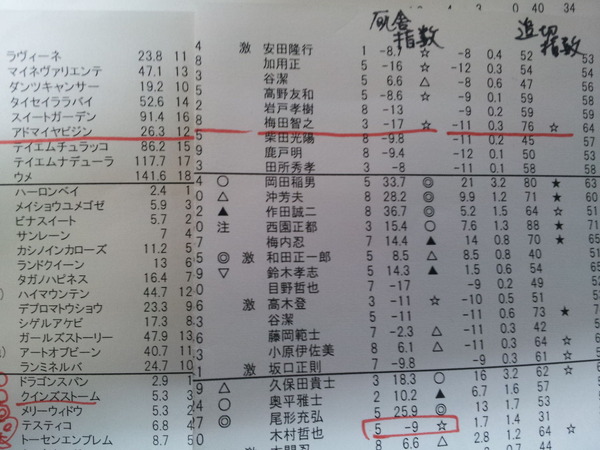 厩舎指数 追切指数
40 34
ラヴィーネ 23.8 11 4 激 安田隆行 1 -8.7 ☆ -8 0.4 52 53
マイネヴァリエンテ 47.1 13 8 加用正 5 -16 ☆ -12 0.3 54 53
ダンツキャンサー 19.2 10 3 谷潔 5 6.6 △ -8 0.6 47 56
タイセイララバイ 52.6 14 高野友和 5 -8.6 ☆ -9 0.1 59 58
スイートガーデン 91.4 16 岩戸孝樹 8 -13 -9 0.2 59 59
アドマイヤビジン 26.3 12 8 梅田智之 3 -17 ☆ -11 0.3 76 ☆ 64
テイエムチュラッコ 86.2 15 5 柴田光陽 8 -9.8 -11 0.2 45 57
テイエムナデューラ 117.7 17 9 鹿戸明 8 -9.4 -12 0.1 50 58
ウメ 141.6 18 3 田所秀孝 3 -8 -11 0.1 58 58
ハーロンベイ 2.4 1 4 ○ 岡田稲男 5 33.7 ◎ 21 3.2 80 ★ 63
メイショウユメゴゼ 5.9 3 0 △ 沖芳夫 8 28.2 ◎ 9.9 1.2 71 ★ 60
ビナスイート 5.7 2 2 ▲ 作田誠二 8 36.7 ◎ 5.2 1.5 64 ☆ 51
サンレーン 7 4 0 注 西園正都 3 15.4 ○ 7.6 1.3 88 ★ 71
カシノインカローズ 11.2 5 梅内忍 7 14.4 ▲ 14 0.8 70 ★ 65
ランドクイーン 13 6 5 ◎ 激 和田正一郎 5 8.5 △ 8.5 0.8 40
タガノハピネス 16.4 7 9 ▽ 鈴木孝志 5 14.3 ▲ 1.5 0.6 54
ハイマウンテン 44.7 12 0 目野哲也 7 -17 -9 0.2 49
デプロマトウショウ 23.3 9 6 激 高木登 3 -11 ☆ -10 0.5 51
シゲルアケビ 17.3 8 3 谷潔 5 -11 -11 0.6 73 ★
ガールズストーリー 47.9 13 6 藤岡範士 7 -2.3 △ -11 0.3 42
アートオブビーン 40.7 11 3 小原伊佐美 8 6.1 △ -11 0.3 64 ☆
ランミネルバ 24.7 10 1 激 坂口正則 7 -9.8 -9 0.3 61 ☆
ドラゴンスパン 2.9 1 9 △ 久保田貴士 3 18.3 ○ 16 3.2 62 ☆
クインズストーム 5.3 3 4 ○ 奥平雅士 2 10.2 ▲ 6.7 1.6 57
メリーウィドウ 5.3 2 7 ◎ 尾形充弘 5 25.9 ◎ 13 1.7 53
テスティコ 6.8 4 木村哲也 5 -9 ☆ 1.7 1.4 31
トーセンエンブレム 8.7 5 8 6.6 △ 2.8 1.2 64 ☆